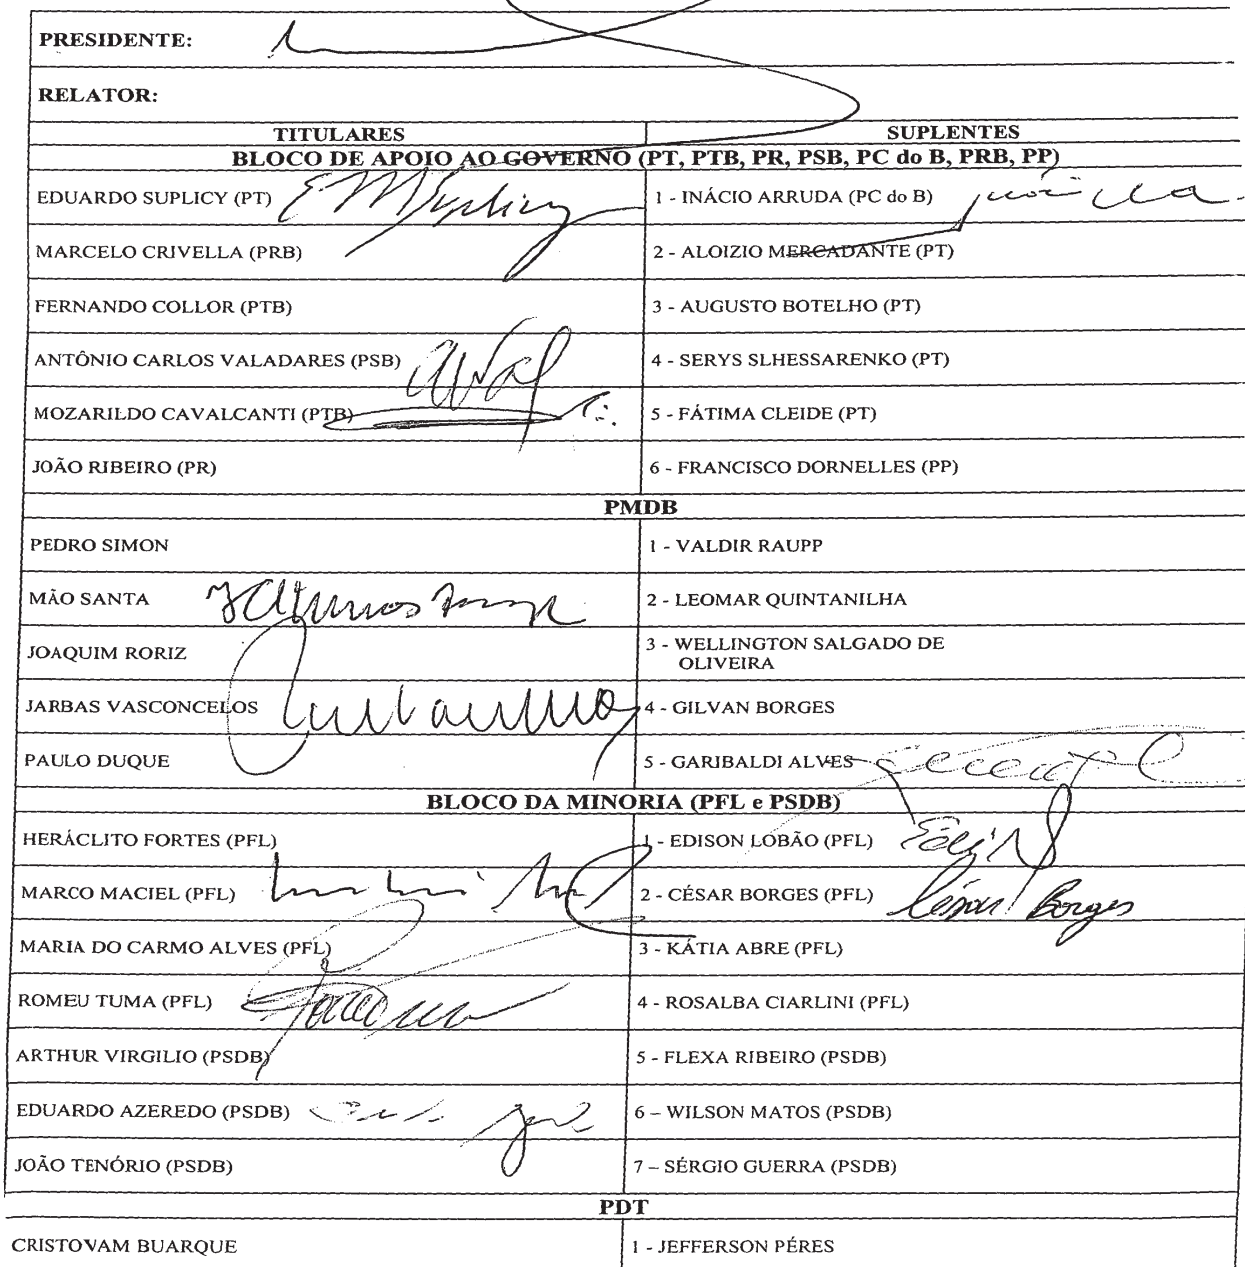 PRESIDENTE:
RELATOR:
TITULARES SUPLENTES
BLOCO DE APOIO AO GOVERNO (PT, PTB, PR, PSB, PC do B, PRB, PP)
EDUARDO SUPLICY (PT) EMSuplicy 1 - INÁCIO ARRUDA (PC do B)
MARCELO CRIVELLA (PRB) 2 - ALOIZIO MERCADANTE (PT)
FERNANDO COLLOR (PTB) 3 - AUGUSTO BOTELHO (PT)
ANTÔNIO CARLOS VALADARES (PSB) 4 - SERYS SLHESSARENKO (PT)
MOZARILDO CAVALCANTI (PTB) 5 - FÁTIMA CLEIDE (PT)
JOÃO RIBEIRO (PR) 6 - FRANCISCO DORNELLES (PP)
PMDB
PEDRO SIMON 1 - VALDIR RAUPP
MÃO SANTA 2 - LEOMAR QUINTANILHA
JOAQUIM RORIZ 3 - WELLINGTON SALGADO DE
OLIVEIRA
JARBAS VASCONCELOS 4 - GILVAN BORGES
PAULO DUQUE 5 - GARIBALDI ALVES
BLOCO DA MINORIA (PFL e PSDB)
HERÁCLITO FORTES (PFL) 1 - EDISON LOBÃO (PFL)
MARCO MACIEL (PFL) 2 - CÉSAR BORGES (PFL) César Borges
MARIA DO CARMO ALVES (PFL) 3 - KÁTIA ABRE (PFL)
ROMEU TUMA (PFL) 4 - ROSALBA CIARLINI (PFL)
ARTHUR VIRGILIO (PSDB) 5 - FLEXA RIBEIRO (PSDB)
EDUARDO AZEREDO (PSDB) 6 – WILSON MATOS (PSDB)
JOÃO TENÓRIO (PSDB) 7 – SÉRGIO GUERRA (PSDB)
PDT
CRISTOVAM BUARQUE 1 - JEFFERSON PÉRES